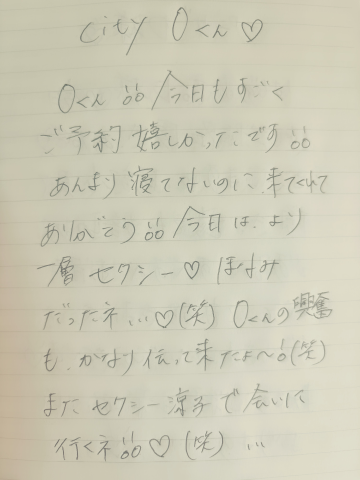 city Oくん♡
Oくん!! 今日もすごく
ご予約嬉しかったです!!
あんまり寝てないのに、来てくれて
ありがとう!! 今日は、より
一層セクシー♡ ほなみ
だったネ…♡(笑) Oくんの興奮
も、かなり伝って来たよ〜!(笑)
またセクシー涼子で会いに
行くネ!!♡(笑)…